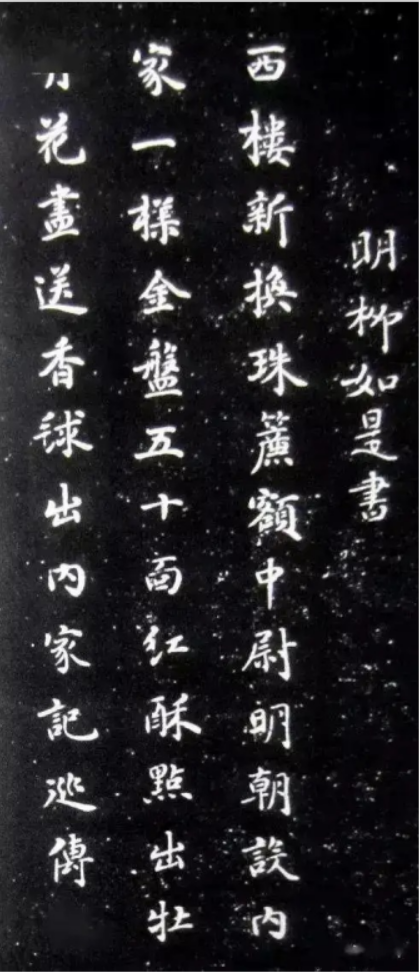 明柳如是書
西樓新換珠簾額中尉明朝設内
家一様金盤五十面紅酥點出牡
花盡送香毬出内家記巡傳